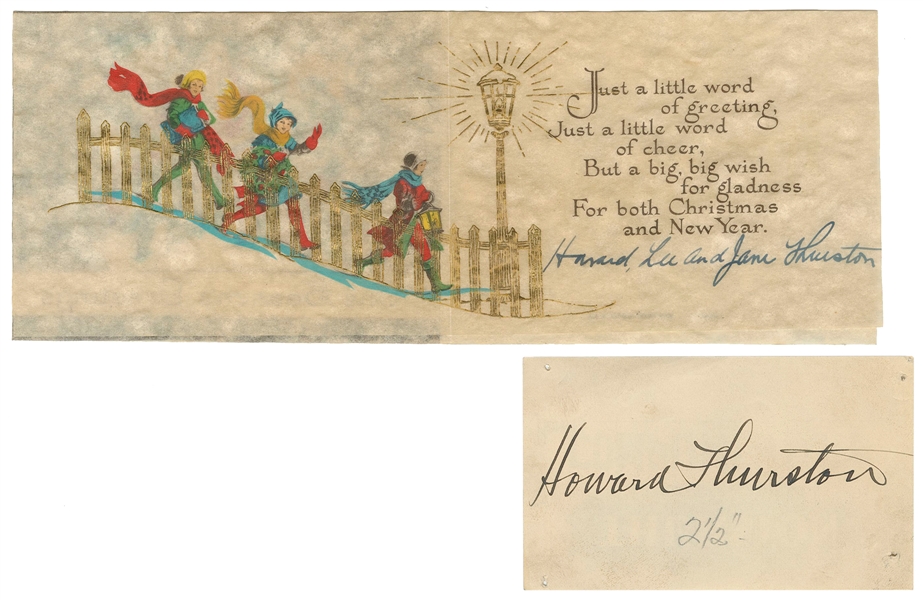 Just a little word
of greeting,
Just a little word
of cheer,
But a big, big wish
for gladness
For both Christmas
and New Year.
Howard, Lee and Jane Thurston
Howard Thurston
2 1/2"